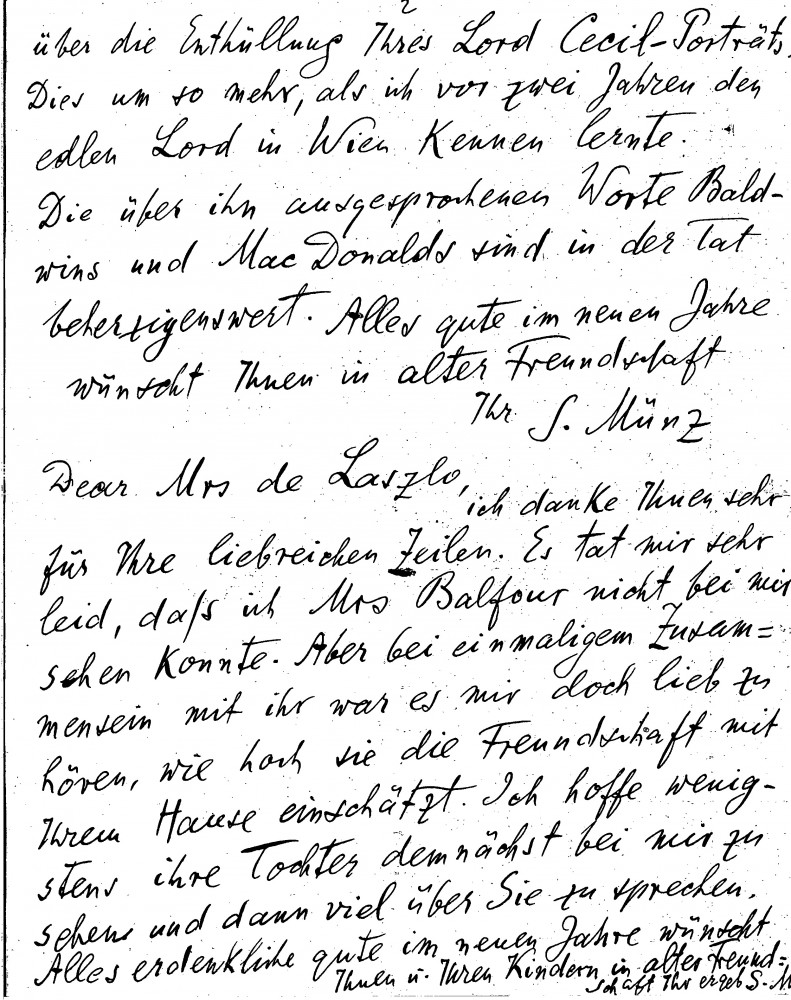 2
über die Enthüllung Ihres Lord Cecil-Porträts,
Dies um so mehr, als ich vor zwei Jahren den
edlen Lord in Wien Kennen lernte.
Die über ihn ausgesprochenen Worte Bald-
wins und Mac Donalds sind in der Tat
beherzigenswert. Alles gute im neuen Jahre
wünscht Ihnen in alter Freundschaft
Ihr S. Münz
Dear Mrs de Laszlo,
ich danke Ihnen sehr
für Ihre liebreichen Zeilen. Es tat mir sehr
leid, dass ich Mrs Balfour nicht bei mir
sehen Konnte. Aber bei einmaligem Zusam=
mensein mit ihr war es mir doch lieb zu
hören, wie hoch sie die Freundschaft mit
Ihrem Hause einschätzt. Ich hoffe wenig-
stens ihre Tochter demnächst bei mir zu
sehen und dann viel über Sie zu sprechen.
Alles erdenkliche gute im neuen Jahre wünscht
Ihnen u. Ihren Kindern in alter Freund=
schaft Ihr ergeb S. M